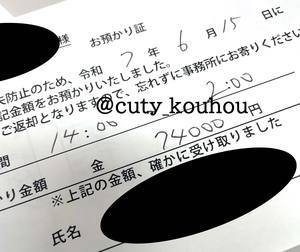 様 お預かり証
失防止のため、令和 7 年 6 月 15 日に
記金額をお預かりいたしました。
ご返却となりますので、忘れずに事務所にお寄りください
@cuty kouhou
間 14:00 2:00
かり金額 金 74000 円
※上記の金額、確かに受け取りました
氏名